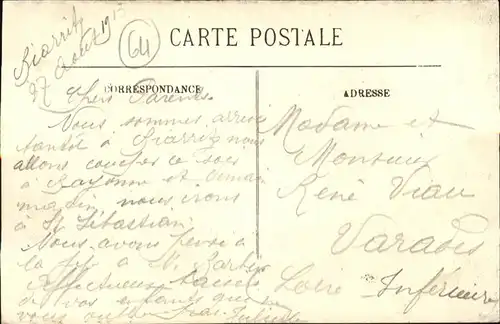 Biarritz
27 Août
64
CARTE POSTALE
CORRESPONDANCE
ADRESSE
Chers Parents
Nous sommes arrivé
tantôt à Biarritz nous
allons coucher ce soir
à Bayonne et demain
matin nous irons
à St Sébastian
Nous avons pensé à
la à
Affectueux baisers
de vos enfants que
vous
Madame et
Monsieur
René Viau
Varades
Loire Inférieure